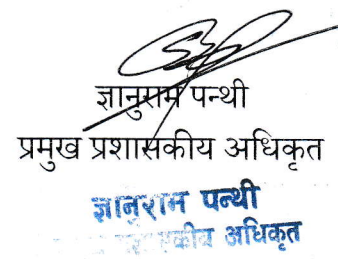 ज्ञानुराम पन्थी
प्रमुख प्रशासकीय अधिकृत
ज्ञानुराम पन्थी
अधिकृत